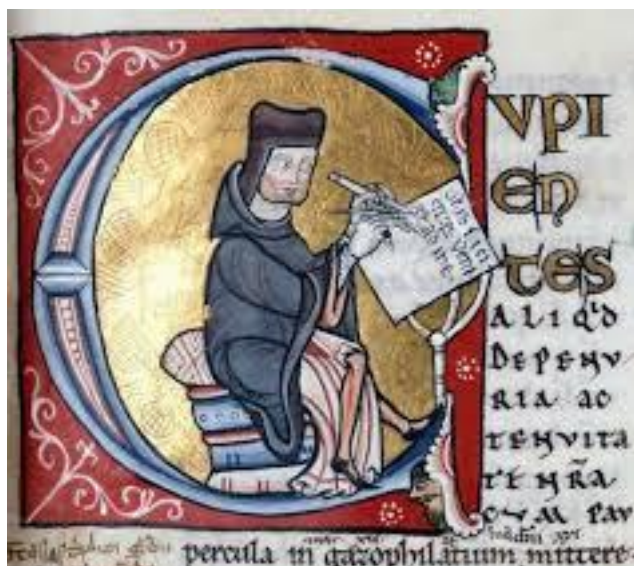 CVPI
EN
TES
ALIQ'D
DEPENV
RIA AC
TENVITA
TE NR̃A
CVM PAV
percula in gazophilatium mittere